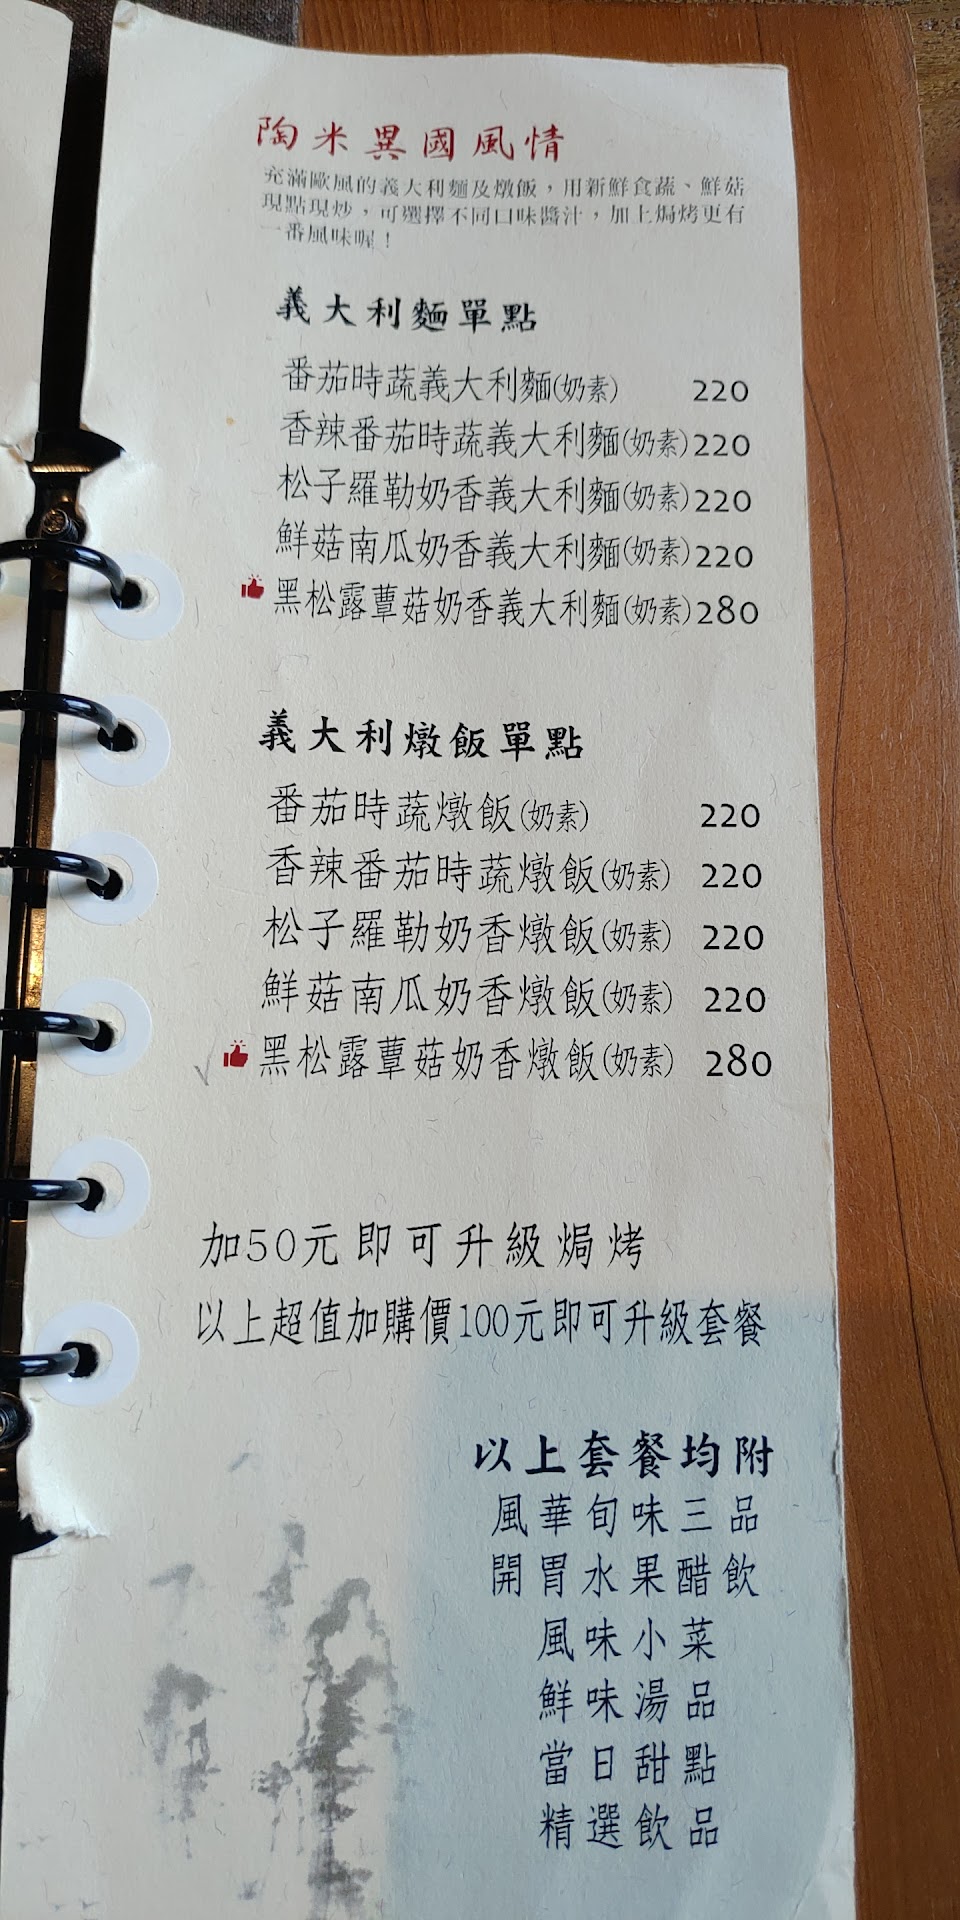 陶米異國風情
充滿歐風的義大利麵及燉飯，用新鮮食蔬、鮮菇
現點現炒，可選擇不同口味醬汁，加上焗烤更有
一番風味喔！
義大利麵單點
番茄時蔬義大利麵(奶素) 220
香辣番茄時蔬義大利麵(奶素) 220
松子羅勒奶香義大利麵(奶素) 220
鮮菇南瓜奶香義大利麵(奶素) 220
黑松露蕈菇奶香義大利麵(奶素) 280
義大利燉飯單點
番茄時蔬燉飯(奶素) 220
香辣番茄時蔬燉飯(奶素) 220
松子羅勒奶香燉飯(奶素) 220
鮮菇南瓜奶香燉飯(奶素) 220
黑松露蕈菇奶香燉飯(奶素) 280
加50元即可升級焗烤
以上超值加購價100元即可升級套餐
以上套餐均附
風華旬味三品
開胃水果醋飲
風味小菜
鮮味湯品
當日甜點
精選飲品